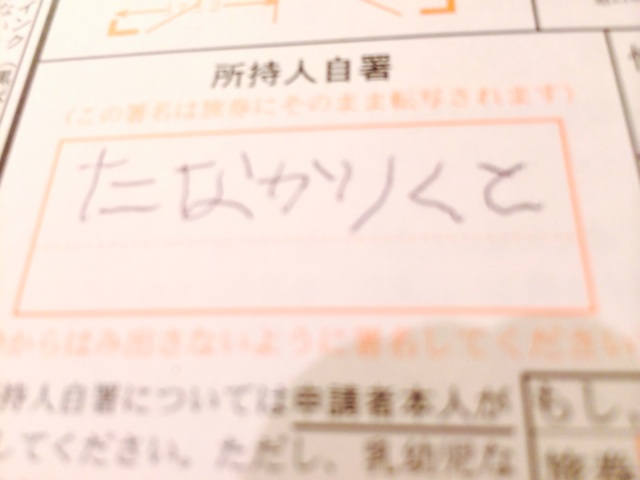 所持人自署
(この署名は旅券にそのまま転写されます)
たなかりくと
からはみ出さないように署名してください
持人自署については申請者本人が
してください。ただし、乳幼児な
もし、
旅券
インク